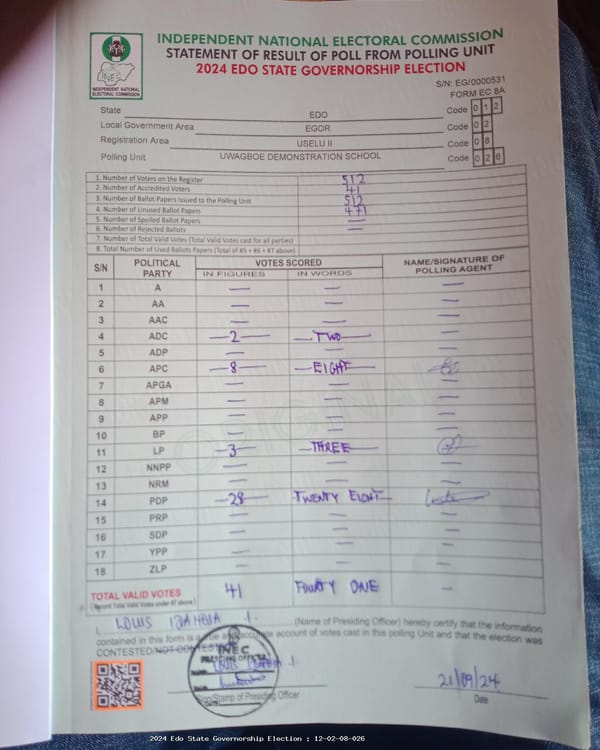 INDEPENDENT NATIONAL ELECTORAL COMMISSION
STATEMENT OF RESULT OF POLL FROM POLLING UNIT
2024 EDO STATE GOVERNORSHIP ELECTION
INEC
INDEPENDENT NATIONAL
ELECTORAL COMMISSION
S/N: EG/0000531
FORM EC 8A
State EDO Code 0 1 2
Local Government Area EGOR Code 0 2
Registration Area USELU II Code 0 8
Polling Unit UWAGBOE DEMONSTRATION SCHOOL Code 0 2 6
1. Number of Voters on the Register 512
2. Number of Accredited Voters 41
3. Number of Ballot Papers Issued to the Polling Unit 512
4. Number of Unused Ballot Papers 471
5. Number of Spoiled Ballot Papers —
6. Number of Rejected Ballots —
7. Number of Total Valid Votes (Total Valid Votes cast for all parties)
8. Total Number of Used Ballots Papers (Total of #5 + #6 + #7 above)
S/N POLITICAL PARTY VOTES SCORED NAME/SIGNATURE OF POLLING AGENT
IN FIGURES IN WORDS
1 A — — —
2 AA — — —
3 AAC — — —
4 ADC —2— —TWO— —
5 ADP — — —
6 APC —8— —EIGHT—
7 APGA — — —
8 APM — — —
9 APP — — —
10 BP — — —
11 LP —3— —THREE—
12 NNPP — — —
13 NRM — — —
14 PDP —28— TWENTY EIGHT—
15 PRP — — —
16 SDP — — —
17 YPP — — —
18 ZLP — — —
TOTAL VALID VOTES 41 FOURTY ONE —
(Record Total Valid Votes under #7 above)
I, LOUIS I. (Name of Presiding Officer) hereby certify that the information
contained in this form is a true and accurate account of votes cast in this polling Unit and that the election was
CONTESTED/NOT CONTESTED
INEC
PRESIDING OFFICER
Sign/Stamp of Presiding Officer
21/09/24
Date
2024 Edo State Governorship Election : 12-02-08-026